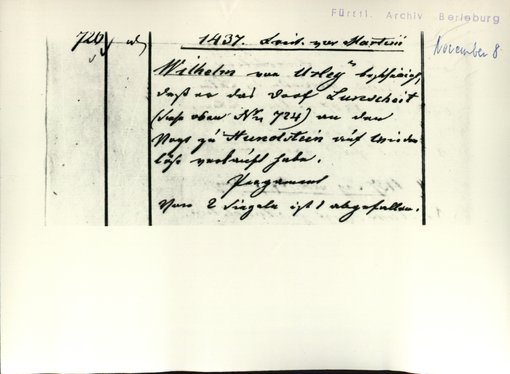 Fürstl. Archiv Berleburg
November 8
726
1437. Freit. vor Martini
Wilhelm von Urley bescheinigt,
daß er das Dorf Lunscheit
(siehe oben Nr. 724) an den
Vogt zu Hundstein auf Wieder
löse verkauft habe.
Pergament
Von 2 Siegeln ist 1 abgefallen.